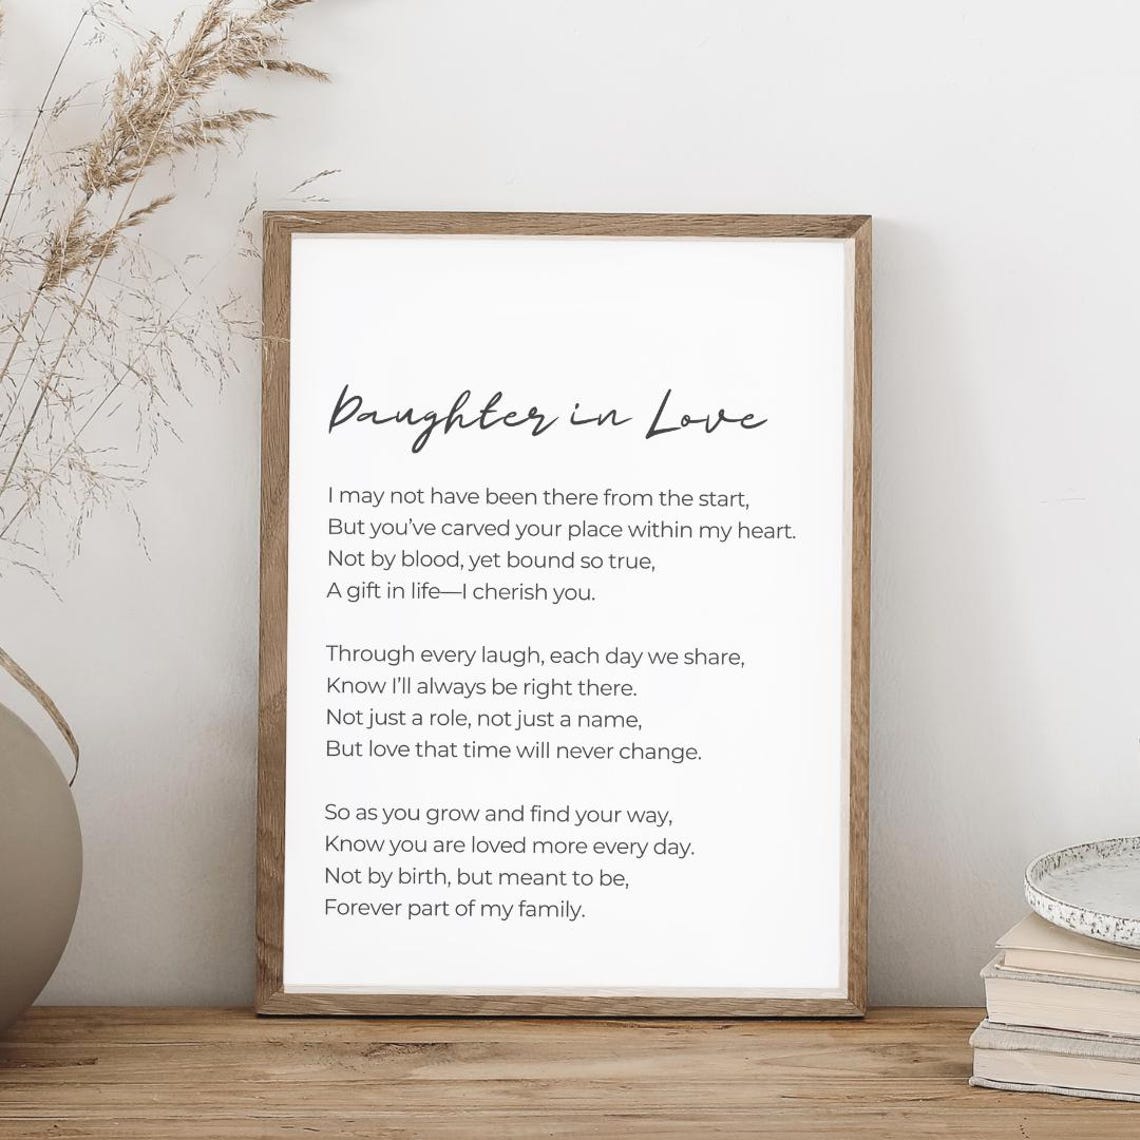 Daughter in Love
I may not have been there from the start,
But you’ve carved your place within my heart.
Not by blood, yet bound so true,
A gift in life—I cherish you.
Through every laugh, each day we share,
Know I’ll always be right there.
Not just a role, not just a name,
But love that time will never change.
So as you grow and find your way,
Know you are loved more every day.
Not by birth, but meant to be,
Forever part of my family.